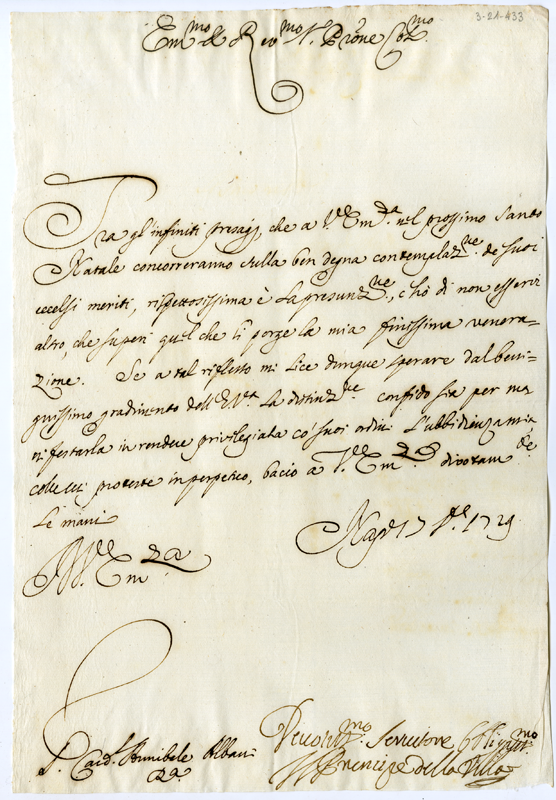 3-21-433
Em.mo e Rev.mo S.r P.rone Col.mo
Tra gl'infiniti presagj, che a V.ra Em.za nel prossimo Santo
Natale concorreranno sulla ben degna contemplaz.ne de suoi
eccelsi meriti, rispettosissima è la presunz.ne, c'hò di non esservi
altro, che superi quel che li porge la mia finissima venera=
zione. Se a tal riflesso mi lice dunque sperare dal beni=
gnissimo gradimento dell'E.V.ra la distinz.ne confido sia per ma
nifestarla in rendere privilegiata co' suoi ordini l'ubbidienza mia
colle cui proteste in perpetuo, bacio a V.ra Em.za divotam.te
le mani
Nap. 17 1729
V.ra Em.za
Devotis.mo Servitore Obligat.mo
S.r Card.l Annibale Albani
Principe della Villa